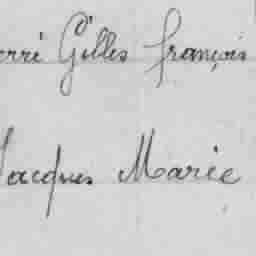 erre Gilles françois
Jacques Marie